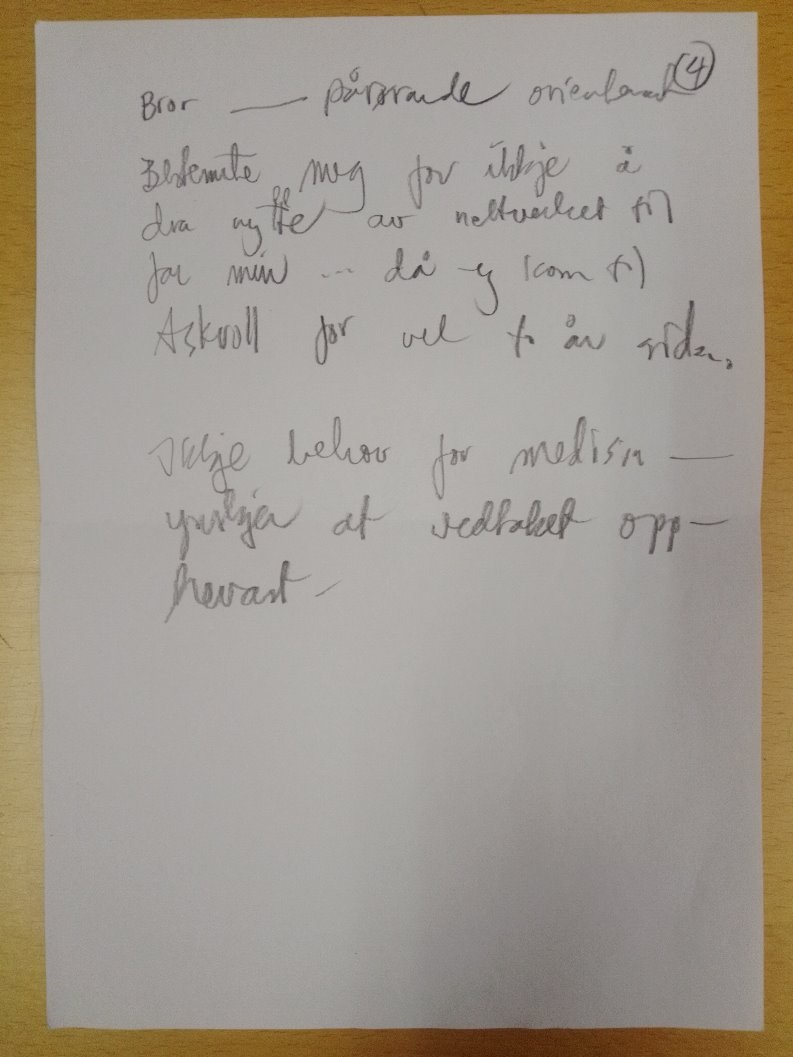 Bror — pårørande (4)
Bestemte meg for ikkje å
dra nytte av nettverket til
far min ... då eg kom til
Askvoll for vel to år sidan.
Ikkje behov for medisin —
ynskjer at vedtaket opp-
hevast —